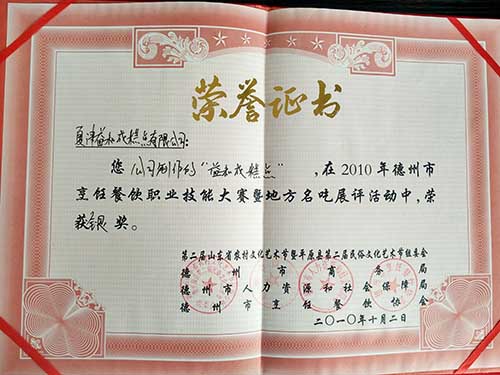 荣誉证书
夏津益利成糕点有限公司:
您公司制作的“益利成糕点”，在2010年德州市
烹饪餐饮职业技能大赛暨地方名吃展评活动中，荣
获银奖。
第二届山东省农村文化艺术节暨平原县第二届民俗文化艺术节组委会
德州市商务局
德州市人力资源和社会保障局
德州市烹饪餐饮协会
二〇一〇年十月二日